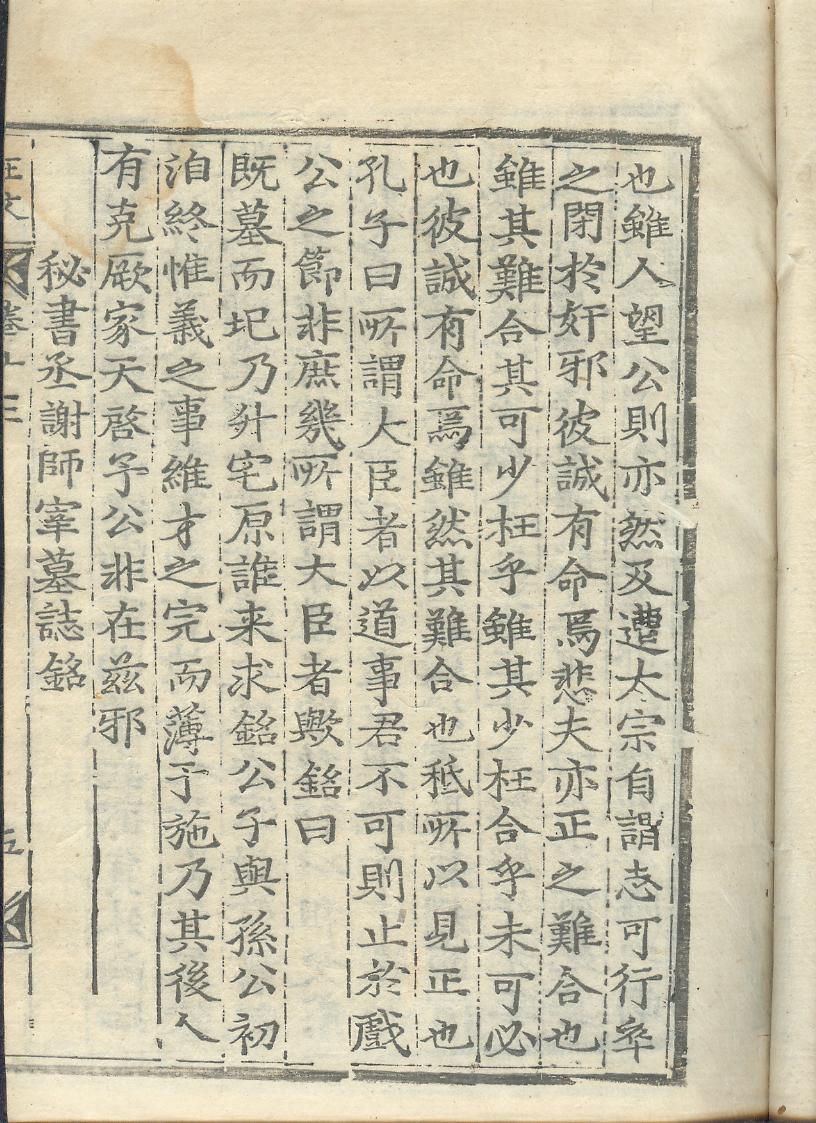 也雖人望公則亦然及遭太宗自謂志可行卒
之閉於奸邪彼誠有命焉悲夫亦正之難合也
雖其難合其可少枉乎雖其少枉合乎未可必
也彼誠有命焉雖然其難合也秪所以見正也
孔子曰所謂大臣者以道事君不可則止於戲
公之節非庶幾所謂大臣者歟銘曰
既墓而圮乃升宅原誰来求銘公子與孫公初
洎終惟義之事維才之完而薄于施乃其後人
有克厥家天啓予公非在兹邪
秘書丞謝師宰墓誌銘
王文
五